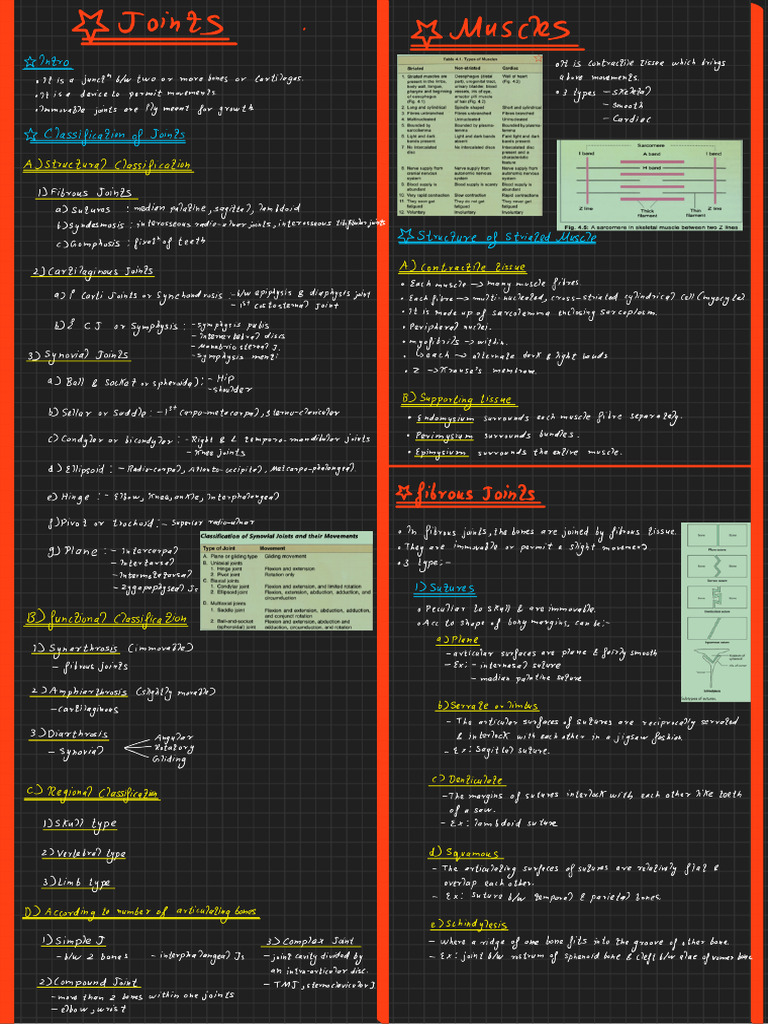 ☆ Joints
☆ Intro
• It is a junctⁿ b/w two or more bones or cartilages.
• It is a device to permit movements
• Immovable joints are fly meant for growth
☆ Classification of Joints
A) Structural Classification
1) Fibrous Joints
a) Sutures : median palatine, sagittal, lambdoid
b) Syndesmosis : interosseous radio-ulnar joints, interosseous tibifibular joints
c) Gomphosis : fixatⁿ of teeth
2) Cartilaginous Joints
a) 1° Carti Joints or Synchondrosis - b/w epiphysis & diaphysis joint
- 1st costosternal joint
b) 2° C J or Symphysis : - symphysis pubis
- Intervertebral discs
- Manubriosternal J.
- Symphysis menti
3) Synovial Joints
a) Ball & Socket or spheroidal : - Hip
- Shoulder
b) Sellar or Saddle : - 1st carpo-metacarpal, sterno-clavicular
c) Condylar or bicondylar : - Right & L temporo-mandibular joints
- Knee joints
d) Ellipsoid : - Radio-carpal, Atlanto-occipital, Metcarpo-phalangeal.
e) Hinge : - Elbow, Knee, ankle, Interphalangeal
f) Pivot or trochoid : - Superior radio-ulnar
g) Plane : - Intercarpal
- Intertarsal
- Intermetatarsal
- Zygapophyseal Js
Classification of Synovial Joints and their Movements
Type of Joint Movement
A. Plane or gliding type Gliding movement
B. Uniaxial joints
1. Hinge joint Flexion and extension
2. Pivot joint Rotation only
C. Biaxial joints
1. Condylar joint Flexion and extension, and limited rotation
2. Ellipsoid joint Flexion, extension, abduction, adduction, and
circumduction
D. Multiaxial joints
1. Saddle joint Flexion and extension, abduction, adduction,
and conjunct rotation
2. Ball-and-socket Flexion and extension, abduction and
(spheroidal) joint adduction, circumduction, and rotation
B) functional Classification
1) Synarthrosis (immovable)
- fibrous joints
2) Amphiarthrosis (slightly movable)
- cartilaginous
3) Diarthrosis
- Synovial
Angular
Rotatory
Gliding
C) Regional Classification
1) Skull type
2) Vertebral type
3) Limb type
D) According to number of articulating bones
1) Simple J
- b/w 2 bones - interphalangeal Js
2) Compound Joint
- more than 2 bones within one joints
- elbow, wrist
3) Complex Joint
- joint cavity divided by
an intra-articular disc.
- TMJ, sternoclavicular J.
☆ Muscles
Table 4.1. Types of Muscles
Striated Non-striated Cardiac
1. Striated muscles are present in the limbs, body wall, tongue, pharynx and beginning of oesophagus (Fig. 4.1)
Oesophagus (distal part), urogenital tract, urinary bladder, blood vessels, iris of eye, arrector pili muscle of hair (Fig. 4.2)
Wall of heart (Fig. 4.3)
2. Long and cylindrical Spindle shaped Short and cylindrical
3. Fibres unbranched Fibres unbranched Fibres branched
4. Multinucleated Uninucleated Uninucleated
5. Bounded by sarcolemma Bounded by plasma membrane Bounded by plasma membrane
6. Light and dark bands present Light and dark bands absent Faint light and dark bands present
7. No intercalated disc No intercalated discs Intercalated disc present and a characteristic feature
8. Nerve supply from central nervous system Nerve supply from autonomic nervous system Nerve supply from autonomic nervous system
9. Blood supply is abundant Blood supply is scanty Blood supply is abundant
10. Very rapid contraction Slow contraction Rapid contractions
11. They soon get fatigued They do not get fatigued They never get fatigued
12. Voluntary Involuntary Involuntary
• It is contractile tissue which brings
above movements.
• 3 types - skeletal
- Smooth
- Cardiac
Sarcomere
I band A band I band
H band
Z line Thick filament Thin filament Z line
Fig. 4.5: A sarcomere in skeletal muscle between two Z lines
☆ Structure of Striated Muscle
A) Contractile tissue
• Each muscle → many muscle fibres.
• Each fibre → multi-nucleated, cross-striated cylindrical cell (myocyte)
• It is made up of sarcolemma enclosing sarcoplasm.
• Peripheral nuclei.
• myofibrils → within.
• ↳ each → alternate dark & light bands
• Z → Krause's membrane.
B) Supporting tissue
• Endomysium surrounds each muscle fibre separately.
• Perimysium surrounds bundles.
• Epimysium surrounds the entire muscle.
☆ fibrous Joints
• In fibrous joints, the bones are joined by fibrous tissue.
• They are immovable or permit a slight movement
• 3 type:-
1) Sutures
• Peculiar to skull & are immovable.
• Acc to shape of bony margins, can be:-
a) Plane
- articular surfaces are plane & fairly smooth
- Ex: - internasal suture
- median palatine suture
b) Serrate or limbus
- The articular surfaces of sutures are reciprocally serrated
& interlock with each other in a jigsaw fashion
- Ex: Sagittal suture.
c) Denticulate
- The margins of sutures interlock with each other like teeth
of a saw.
- Ex: lambdoid suture
d) Squamous
- The articulating surfaces of sutures are relatively flat &
overlap each other.
- Ex: Suture b/w temporal & parietal bones.
e) Schindylesis
- where a ridge of one bone fits into the groove of other bone.
- Ex: joint b/w rostrum of sphenoid bone & cleft b/w alae of vomer bone
Plane suture
Serrate suture
Denticulate suture
Squamous suture
Schindylesis
Subtypes of sutures.